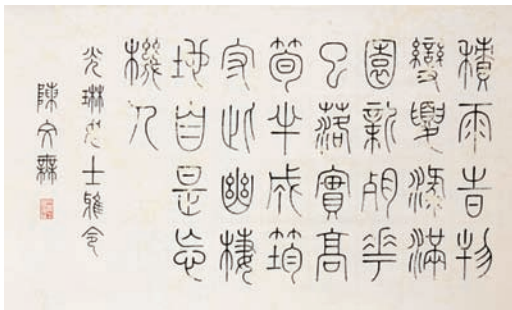 積雨旹物
變夏淥滿
園新殘花
已落實高
筍半成筠
守此幽棲
地自是忘
機人
光琳女士雅令
陳文